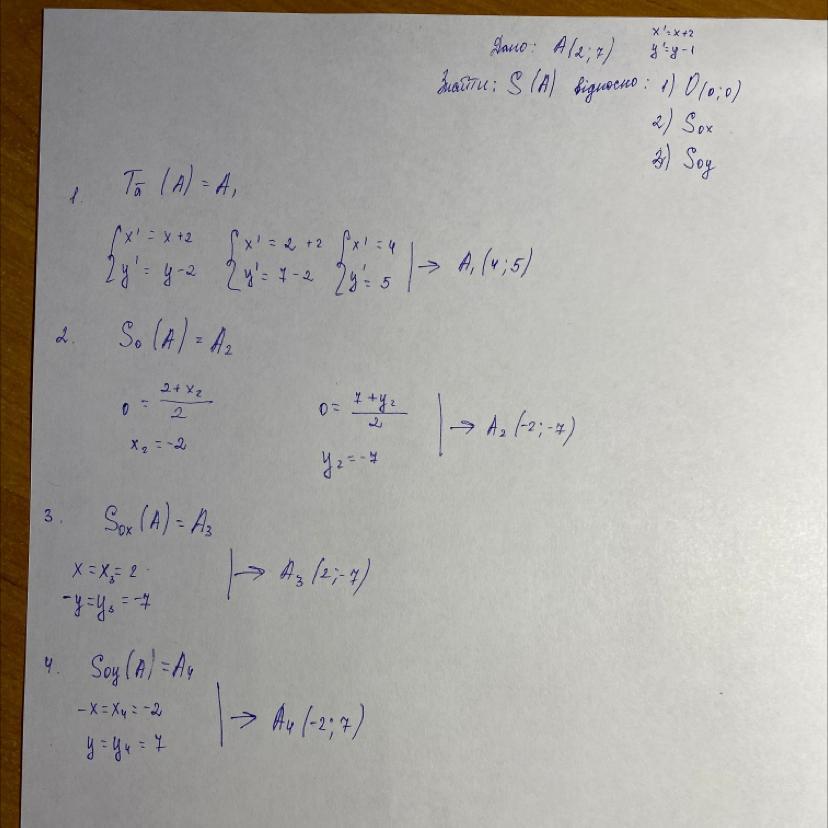 Дано: A(2;7) x'=x+2
y'=y-1
Знайти: S(A) відносно: 1) O(0;0)
2) Sox
3) Soy
1. Tā (A) = A₁
{x' = x+2 {x' = 2+2 {x' = 4
{y' = y-2 {y' = 7-2 {y' = 5 | → A₁(4;5)
2. S₀(A) = A₂
0 = (2+x₂)/2 0 = (7+y₂)/2 | → A₂(-2;-7)
x₂ = -2 y₂ = -7
3. Sox(A) = A₃
x = x₃ = 2 | → A₃(2;-7)
-y = y₃ = -7
4. Soy(A) = A₄
-x = x₄ = -2 | → A₄(-2;7)
y = y₄ = 7